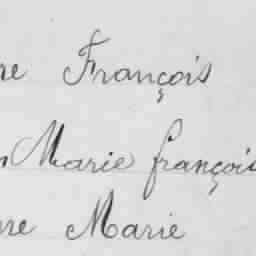 re François
n Marie françois
re Marie